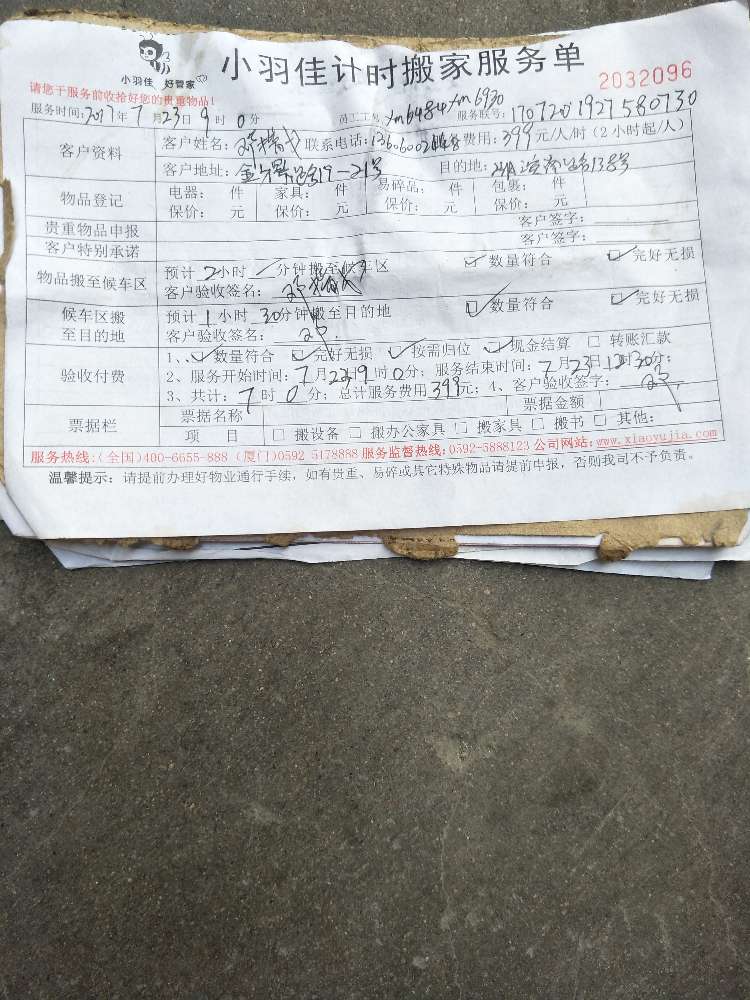 小羽佳 好管家
小羽佳计时搬家服务单
2032096
请您于服务前收拾好您的贵重物品!
服务时间:2017年7月23日9时0分 员工工号:xm6484xm6930 服务联号:1707201927580730
客户资料 客户姓名: 联系电话:13606002 服务费用:399元/人/时(2小时起/人)
客户地址: 17-21号 目的地: 138号
物品登记 电器: 件 家具: 件 易碎品: 件 包裹: 件
保价: 元 保价: 元 保价: 元 保价: 元
贵重物品申报 客户签字:
客户特别承诺 客户签字:
物品搬至候车区 预计2小时 分钟搬至候车区 ☑数量符合 ☑完好无损
客户验收签名:
候车区搬至目的地 预计1小时30分钟搬至目的地 ☑数量符合 ☑完好无损
客户验收签名:
验收付费 1、☑数量符合 ☑完好无损 ☑按需归位 ☑现金结算 □转账汇款
2、服务开始时间:7月23日9时0分; 服务结束时间:7月23日12时30分;
3、共计:7时0分; 总计服务费用399元; 4、客户验收签字:
票据栏 票据名称 票据金额
项 目 □搬设备 □搬办公家具 □搬家具 □搬书 □其他:
服务热线:(全国)400-6655-888 (厦门)0592 5178888 服务监督热线:0592-5888123 公司网站:www.xiaoyujia.com
温馨提示: 请提前办理好物业通行手续,如有贵重、易碎或其它特殊物品请提前申报,否则我司不予负责。